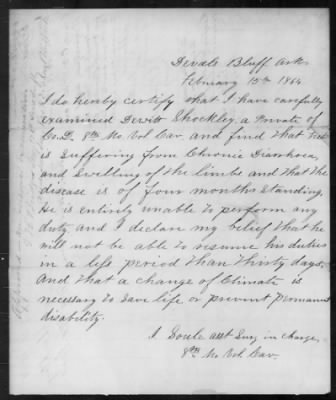 Devals Bluff Ark
February 15th 1864
I do hereby certify that I have carefully
examined Dewitt Shockley, a Private of
Co. D. 8th Mo Vol Cav. and find that he
is suffering from Chronic Diarrhoea,
and Swelling of the limbs and that the
disease is of four months standing.
He is entirely unable to perform any
duty and I declare my belief that he
will not be able to resume his duties
in a less period than thirty days,
And that a change of Climate is
necessary to save life or prevent permanent
disability.
I Soule asst Surg in charge,
8th Mo Vol Cav.